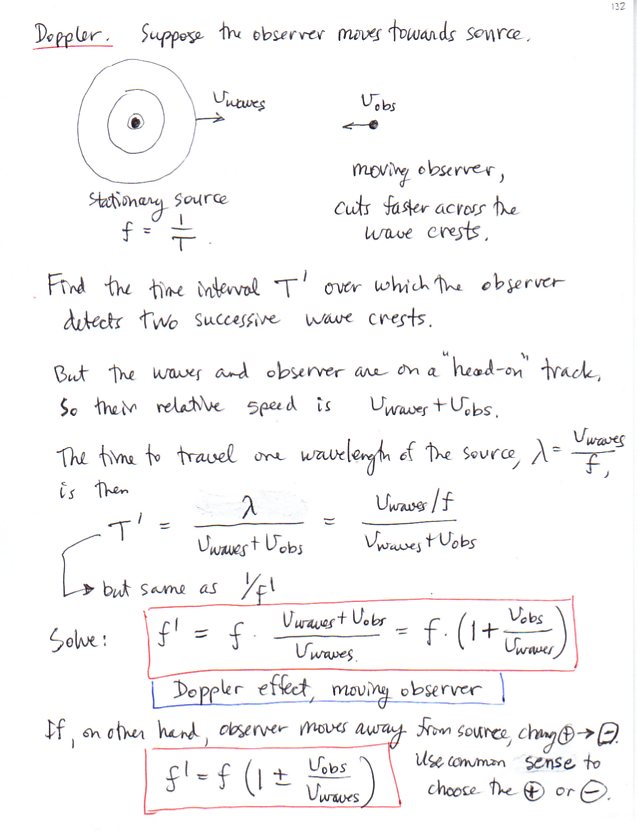 132
Doppler. Suppose the observer moves towards source.
Vwaves
Vobs
stationary source
f = 1/T
moving observer,
cuts faster across the
wave crests.
Find the time interval T' over which the observer
detects two successive wave crests.
But the waves and observer are on a "head-on" track,
So their relative speed is Vwaves + Vobs.
The time to travel one wavelength of the source, λ = Vwaves/f,
is then
T' = λ/(Vwaves + Vobs) = (Vwaves/f)/(Vwaves + Vobs)
but same as 1/f'
Solve: f' = f · (Vwaves + Vobs)/Vwaves = f · (1 + Vobs/Vwaves)
Doppler effect, moving observer
If, on other hand, observer moves away from source, chang ⊕ → ⊖.
f' = f (1 ± Vobs/Vwaves)
Use common sense to
choose the ⊕ or ⊖.